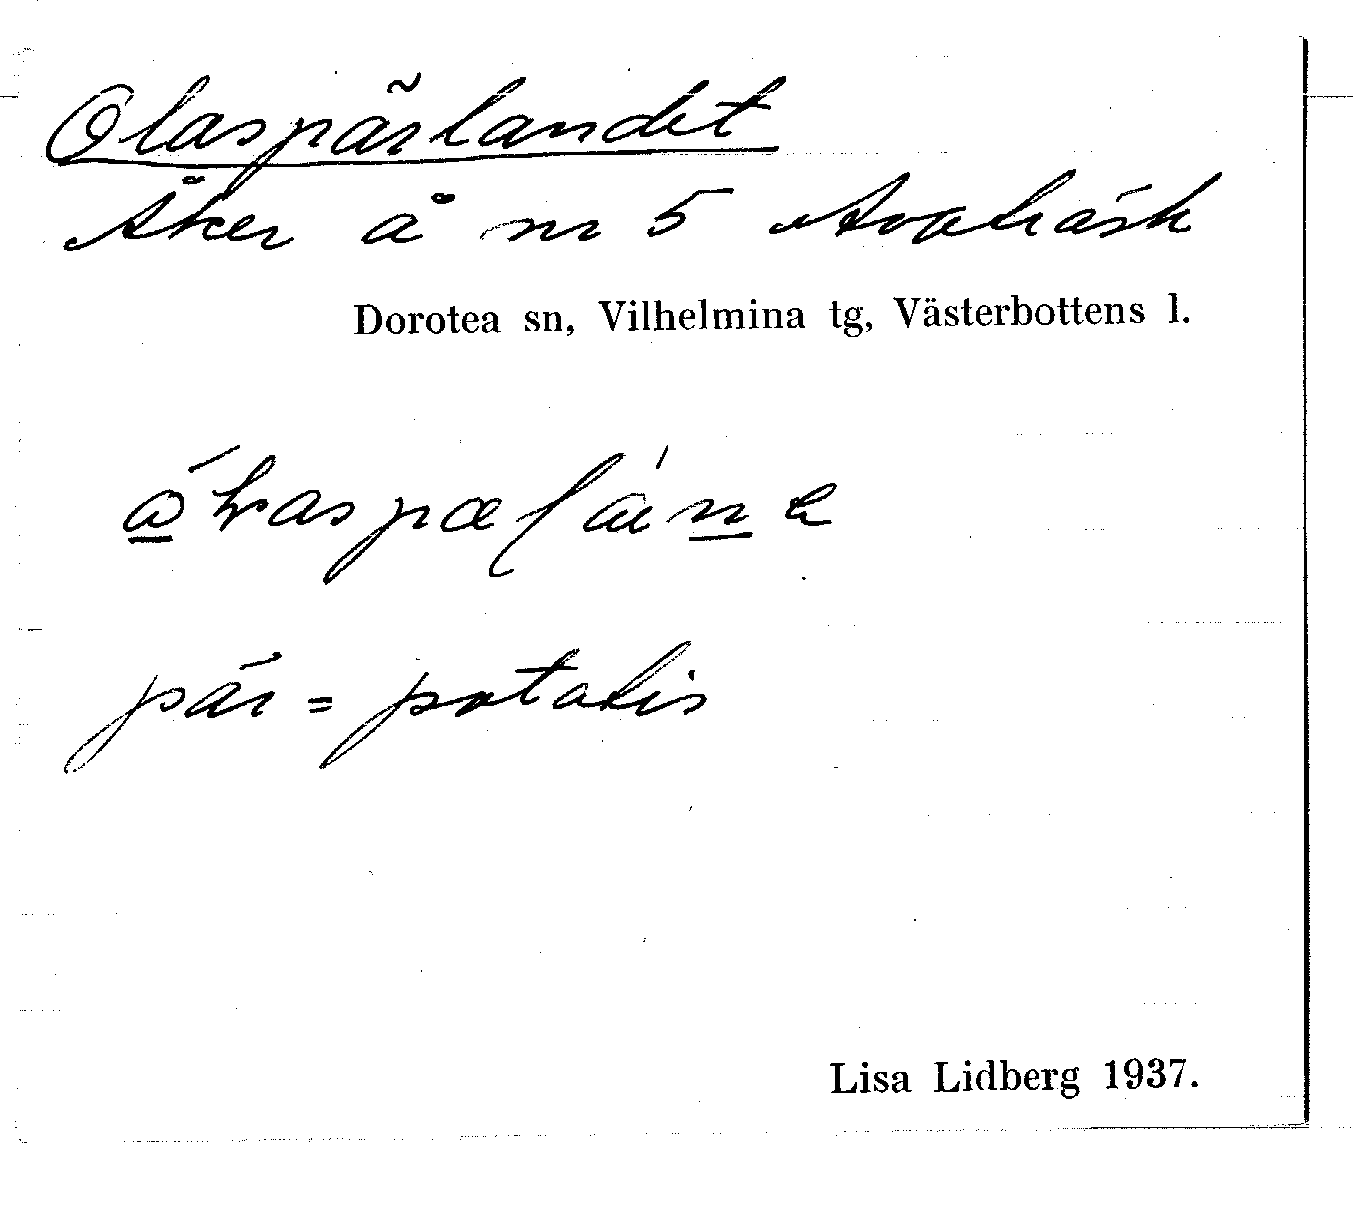 Olaspärlandet
Åker å nr 5 Avaträsk
Dorotea sn, Vilhelmina tg, Västerbottens l.
pär = potatis
Lisa Lidberg 1937.